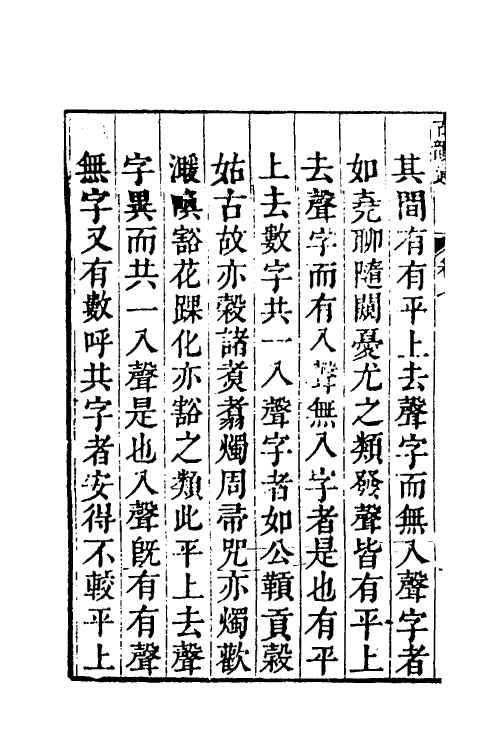 其間有有平上去聲字而無入聲字者
如堯聊隨闕憂尤之類發聲皆有平上
去聲字而有入聲無入字者是也有平
上去數字共一入聲字者如公䪷貢穀
姑古故亦穀諸煑翥燭周帚咒亦燭歡
緩喚豁花踝化亦豁之類此平上去聲
字異而共一入聲是也入聲旣有有聲
無字又有數呼共字者安得不較平上